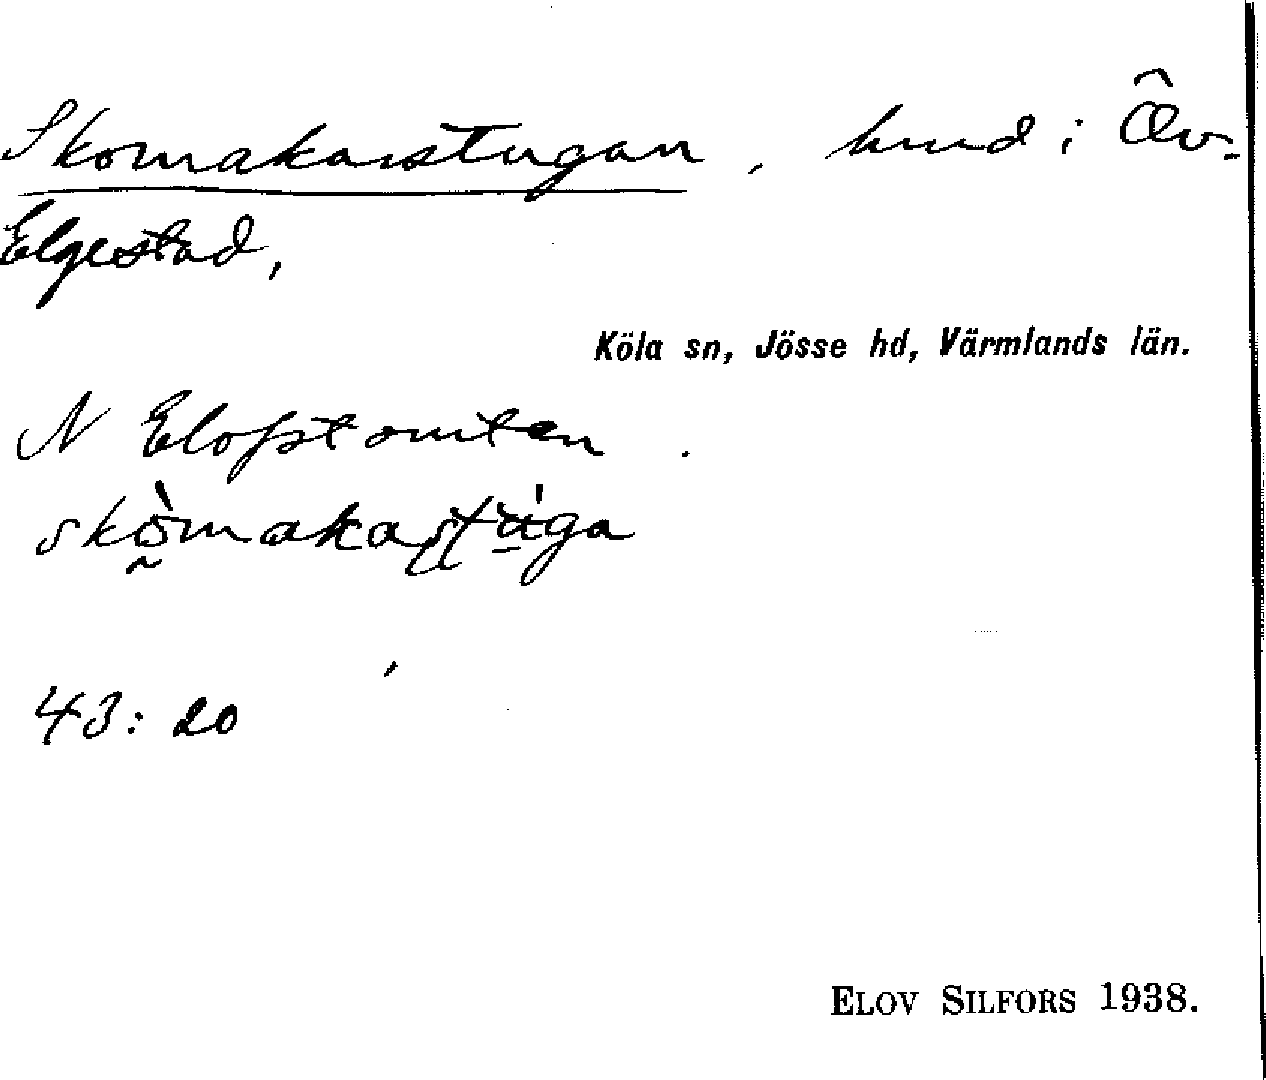 Skomakarstugan, hmd i Öv.
Elgestad,
Köla sn, Jösse hd, Värmlands län.
N Elofstomten.
skòmakaʂʈúga
43:20
ELOV SILFORS 1938.